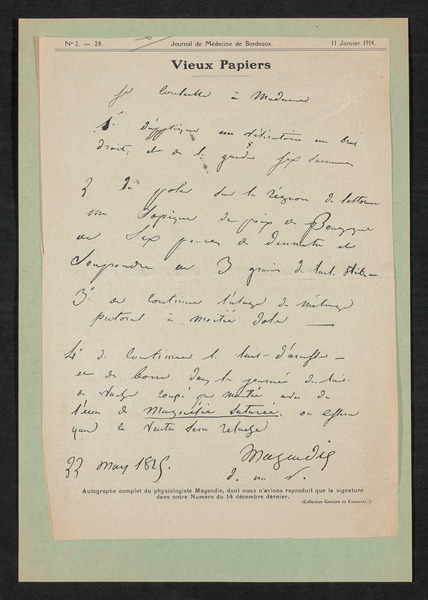 N° 2. — 28
Journal de Médecine de Bordeaux.
11 Janvier 1914.
Vieux Papiers
je conseille à Madame
1° d'appliquer un vésicatoire au bras
droit, et de le garder six semaines
2 De poser sur la région de l'estomac
un de poix de Bourgogne
de Six pouces de et
Saupoudré de 3 grains de tartre stibié
3° de continuer l'usage du mélange
pectoral à moitié dose —
4° de continuer le lait d'ânesse —
et de boire dans la journée du lait
de vache coupé par moitié avec de
l'eau de Magnésie saturée, ou
que le ventre sera relâché
22 may 1825.
Magendie
d. m. p.
Autographe complet du physiologiste Magendie, dont nous n'avions reproduit que la signature
dans notre Numéro du 14 décembre dernier.
(Collection de )